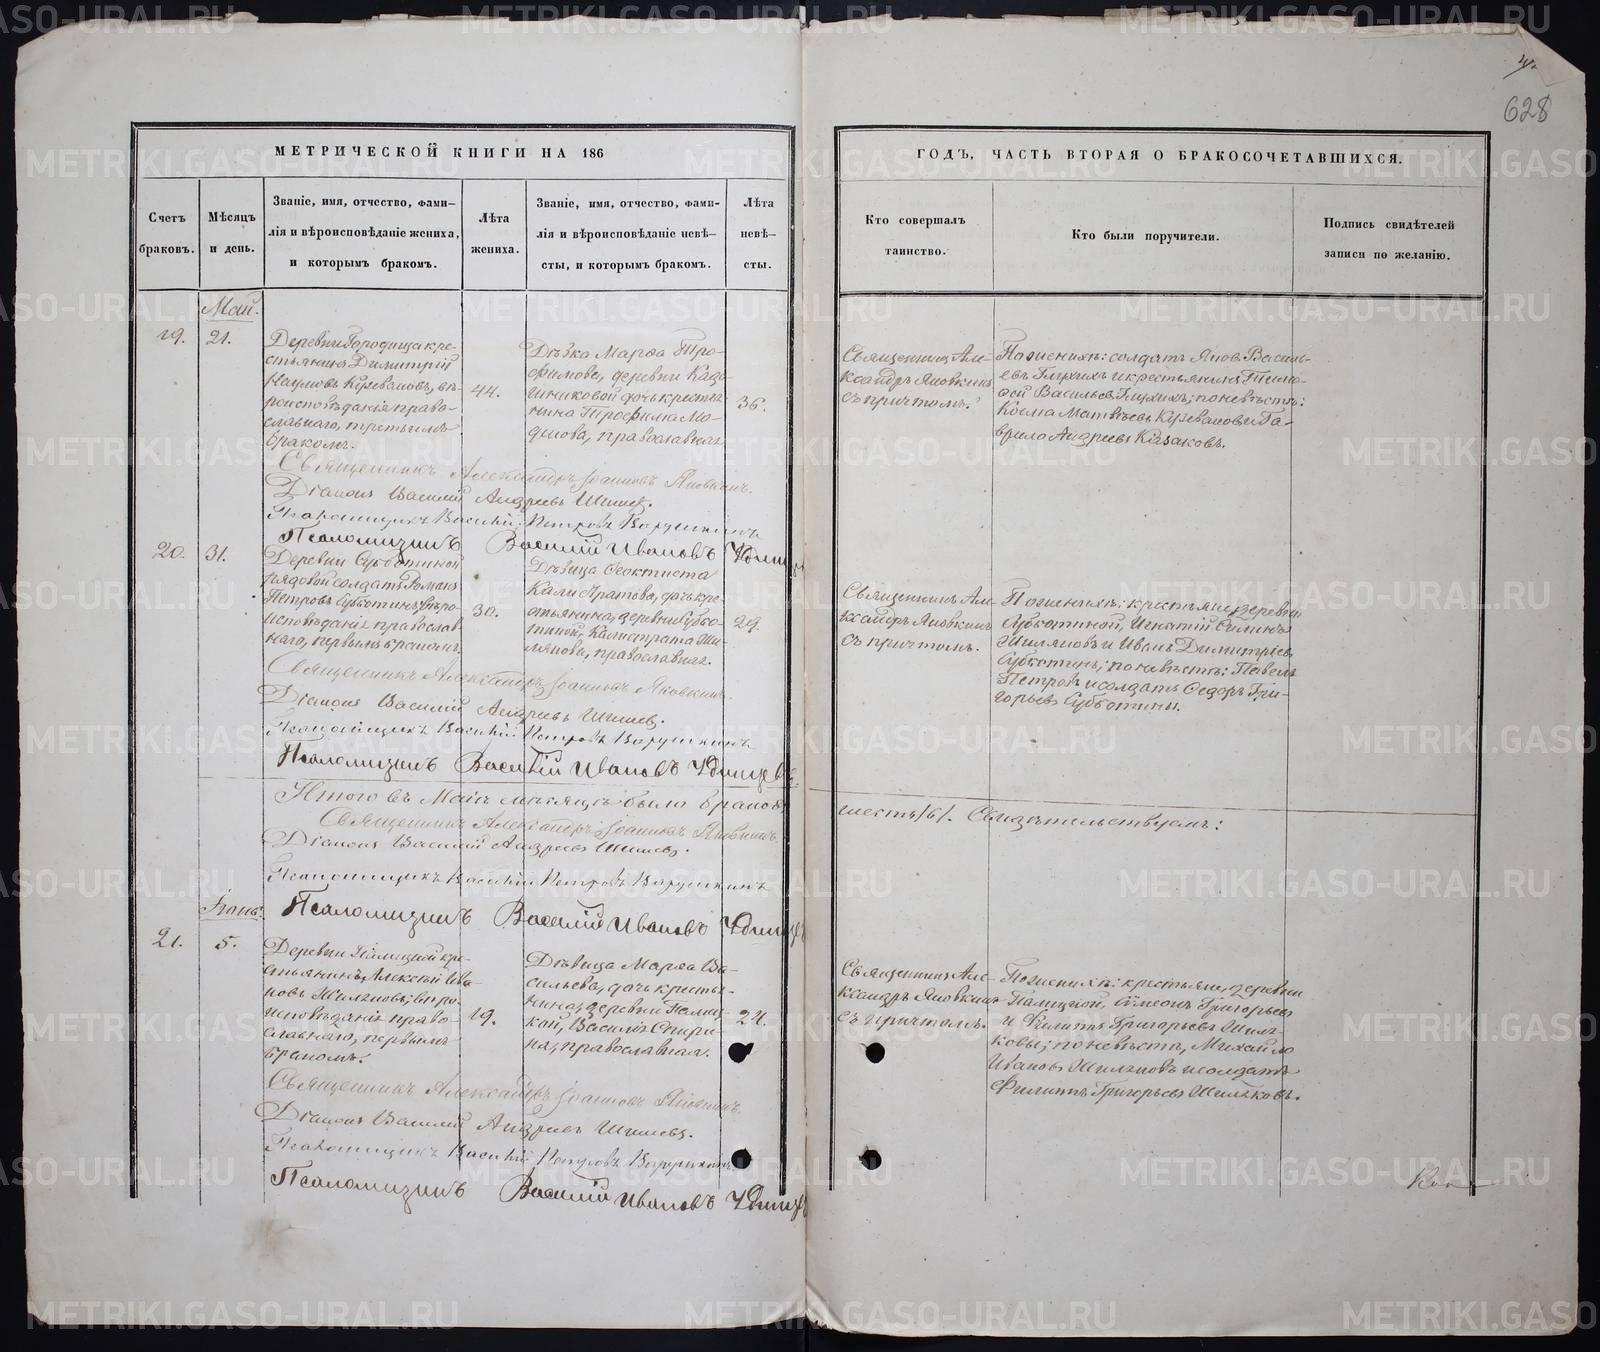 628
МЕТРИЧЕСКОЙ КНИГИ НА 186
ГОДЪ, ЧАСТЬ ВТОРАЯ О БРАКОСОЧЕТАВШИХСЯ.
Счетъ
браковъ.
Мѣсяцъ
и день.
Званіе, имя, отчество, фами-
лія и вѣроисповѣданіе жениха,
и которымъ бракомъ.
Лѣта
жениха.
Званіе, имя, отчество, фами-
лія и вѣроисповѣданіе невѣ-
сты, и которымъ бракомъ.
Лѣта
невѣ-
сты.
Кто совершалъ
таинство.
Кто были поручители.
Подпись свидѣтелей
записи по желанію.
Май.
19.
21.
Деревни Городища кре-
стьянинъ Димитрій
Наумовъ Кузевановъ, вѣ-
роисповѣданія право-
славнаго, третьимъ
бракомъ.
44.
Дѣвка Марѳа Тро-
фимова, деревни Каза-
нина Трофима
православная
36.
Священникъ Але-
ксандръ Яновкинъ
съ причтомъ.
По женихѣ: солдатъ Яковъ Василь-
евъ Глухихъ и крестьянинъ Тимо-
ѳей Васильевъ Глухихъ; по невѣстѣ:
Козма Матвѣевъ Кузевановъ и Га-
врило Андреевъ Казаковъ.
Священникъ Александръ Іоанновъ Яновкинъ.
Діаконъ Василій Андреевъ Шишевъ.
Василій Петровъ Ворушкинъ
Псаломщикъ Василій Ивановъ Удинцевъ
20.
31.
Деревни Субботиной
рядовой солдатъ Романъ
Петровъ Субботинъ, вѣро-
исповѣданія православ-
наго, первымъ бракомъ.
30.
Дѣвица Ѳеоктиста
Калистратова, дочь кре-
стьянина, деревни Суббо-
тиной, Калистрата Ши-
лянова, православная.
29.
Священникъ Але-
ксандръ Яновкинъ
съ причтомъ.
По женихѣ: крестьяне деревни
Субботиной, Игнатій Силинъ
Шиляновъ и Иванъ Димитріевъ
Субботинъ; по невѣстѣ: Павелъ
Петровъ и солдатъ Ѳедоръ Гри-
горьевъ Субботины.
Священникъ Александръ Іоанновъ Яновкинъ.
Діаконъ Василій Андреевъ Шишевъ.
Василій Петровъ Ворушкинъ
Псаломщикъ Василій Ивановъ Удинцевъ
Итого въ Маѣ мѣсяцѣ было браковъ
шесть /6/. Свидѣтельствуемъ:
Священникъ Александръ Іоанновъ Яновкинъ.
Діаконъ Василій Андреевъ Шишевъ.
Василій Петровъ Ворушкинъ
Псаломщикъ Василій Ивановъ Удинцевъ
Іюнь.
21.
5.
Деревни кре-
стьянинъ Алексѣй Ива-
новъ Шиляновъ, вѣро-
исповѣданія право-
славнаго, первымъ
бракомъ.
19.
Дѣвица Марѳа Ва-
сильева, дочь кресть-
янина, деревни
Василья Спири-
на, православная.
24.
Священникъ Але-
ксандръ Яновкинъ
съ причтомъ.
По женихѣ: крестьяне, деревни
Сѵмеонъ Григорьевъ
и Филиппъ Григорьевъ
по невѣстѣ, Михайло
Ивановъ Шиляновъ и солдатъ
Филиппъ Григорьевъ
Священникъ Александръ Іоанновъ Яновкинъ.
Діаконъ Василій Андреевъ Шишевъ.
Василій Петровъ Ворушкинъ
Псаломщикъ Василій Ивановъ Удинцевъ
METRIKI.GASO-URAL.RU